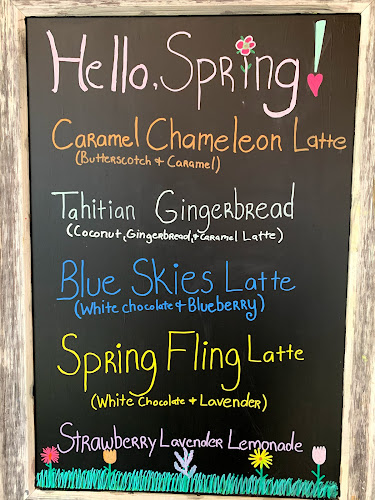 Hello, Spring!
Caramel Chameleon Latte
(Butterscotch & Caramel)
Tahitian Gingerbread
(Coconut, Gingerbread, & Caramel Latte)
Blue Skies Latte
(White chocolate & Blueberry)
Spring Fling Latte
(White Chocolate & Lavender)
Strawberry Lavender Lemonade